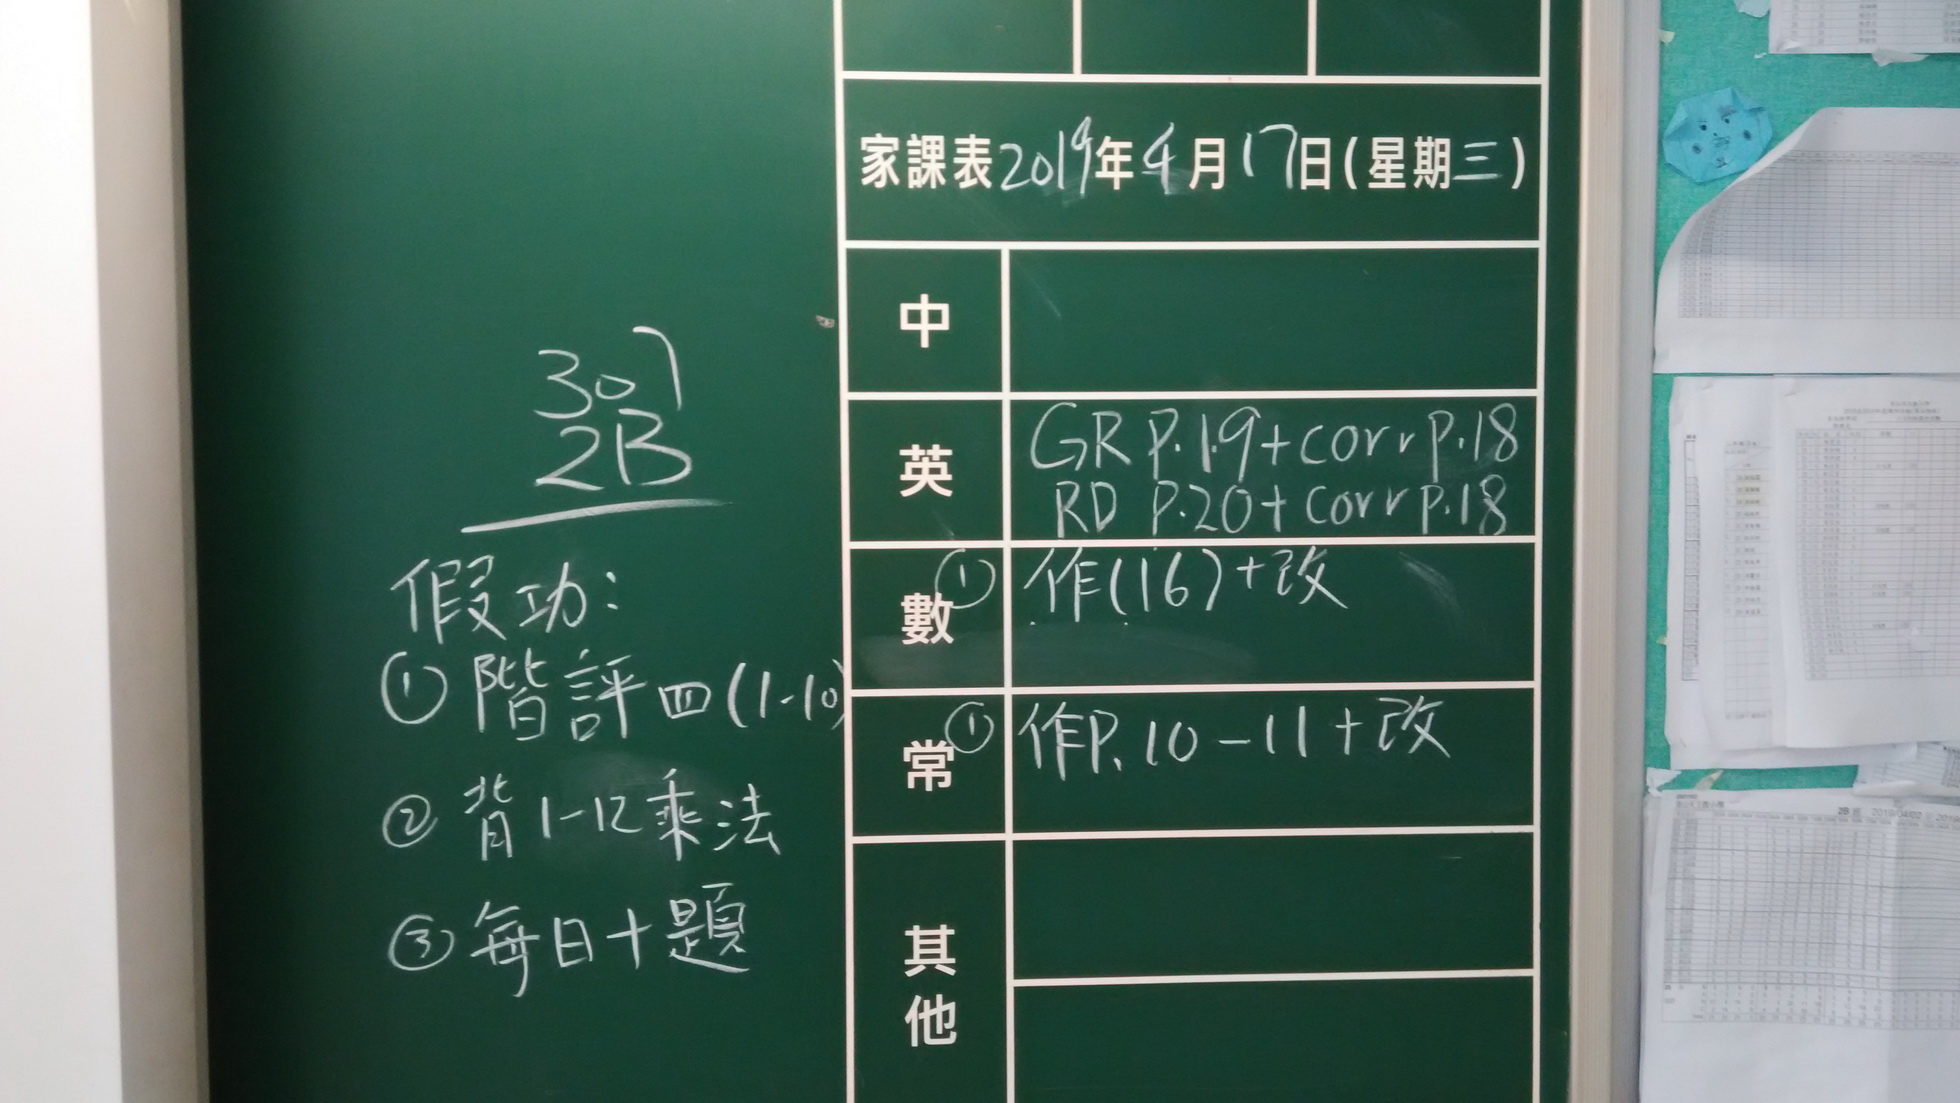 家課表2019年4月17日(星期三)
中
英
GR P.19+corr p.18
RD P.20+corr p.18
數
① 作(16)+改
常
① 作P.10-11+改
其他
307
2B
假功:
① 階評四(1-10)
② 背1-12乘法
③ 每日十題
2B